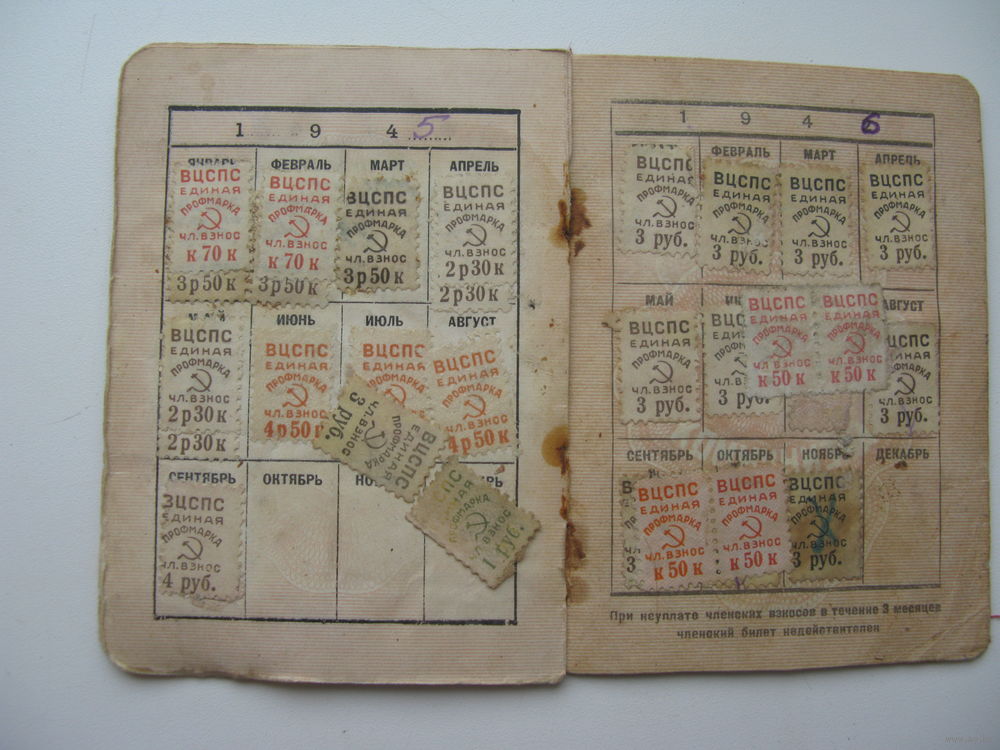 1 9 4 5
ЯНВАРЬ ФЕВРАЛЬ МАРТ АПРЕЛЬ
ВЦСПС ВЦСПС ВЦСПС ВЦСПС
ЕДИНАЯ ЕДИНАЯ ЕДИНАЯ ЕДИНАЯ
ПРОФМАРКА ПРОФМАРКА ПРОФМАРКА ПРОФМАРКА
ЧЛ.ВЗНОС ЧЛ.ВЗНОС ЧЛ.ВЗНОС ЧЛ.ВЗНОС
к 70 к к 70 к 3р50к 2р30к
3р50к 3р50к 2р30к
МАЙ ИЮНЬ ИЮЛЬ АВГУСТ
ВЦСПС ВЦСПС ВЦСПС ВЦСПС
ЕДИНАЯ ЕДИНАЯ ЕДИНАЯ ЕДИНАЯ
ПРОФМАРКА ПРОФМАРКА ПРОФМАРКА ПРОФМАРКА
ЧЛ.ВЗНОС ЧЛ.ВЗНОС ЧЛ.ВЗНОС
2р30к 4р50к 4р50к
2р30к
ВЦСПС
ЕДИНАЯ
ПРОФМАРКА
ЧЛ.ВЗНОС
3 руб.
СЕНТЯБРЬ ОКТЯБРЬ
ВЦСПС
ЕДИНАЯ
ПРОФМАРКА
ЧЛ.ВЗНОС
4 руб.
ПРОФМАРКА
ЧЛ.ВЗНОС
1 руб.
1 9 4 6
ФЕВРАЛЬ МАРТ АПРЕЛЬ
ВЦСПС ВЦСПС ВЦСПС ВЦСПС
ЕДИНАЯ ЕДИНАЯ ЕДИНАЯ ЕДИНАЯ
ПРОФМАРКА ПРОФМАРКА ПРОФМАРКА ПРОФМАРКА
ЧЛ.ВЗНОС ЧЛ.ВЗНОС ЧЛ.ВЗНОС ЧЛ.ВЗНОС
3 руб. 3 руб. 3 руб. 3 руб.
МАЙ АВГУСТ
ВЦСПС ВЦСПС ВЦСПС ВЦСПС
ЕДИНАЯ ЕДИНАЯ ЕДИНАЯ ЕДИНАЯ
ПРОФМАРКА ПРОФМАРКА ПРОФМАРКА
ЧЛ.ВЗНОС ЧЛ.ВЗНОС ЧЛ.ВЗНОС ЧЛ.ВЗНОС
3 руб. 3 руб. к 50 к к 50 к 3 руб.
СЕНТЯБРЬ ОКТЯБРЬ НОЯБРЬ ДЕКАБРЬ
ВЦСПС ВЦСПС ВЦСПС
ЕДИНАЯ ЕДИНАЯ ЕДИНАЯ
ПРОФМАРКА ПРОФМАРКА ПРОФМАРКА
ЧЛ.ВЗНОС ЧЛ.ВЗНОС ЧЛ.ВЗНОС
3 к 50 к к 50 к 3 руб.
При неуплате членских взносов в течение 3 месяцев
членский билет недействителен